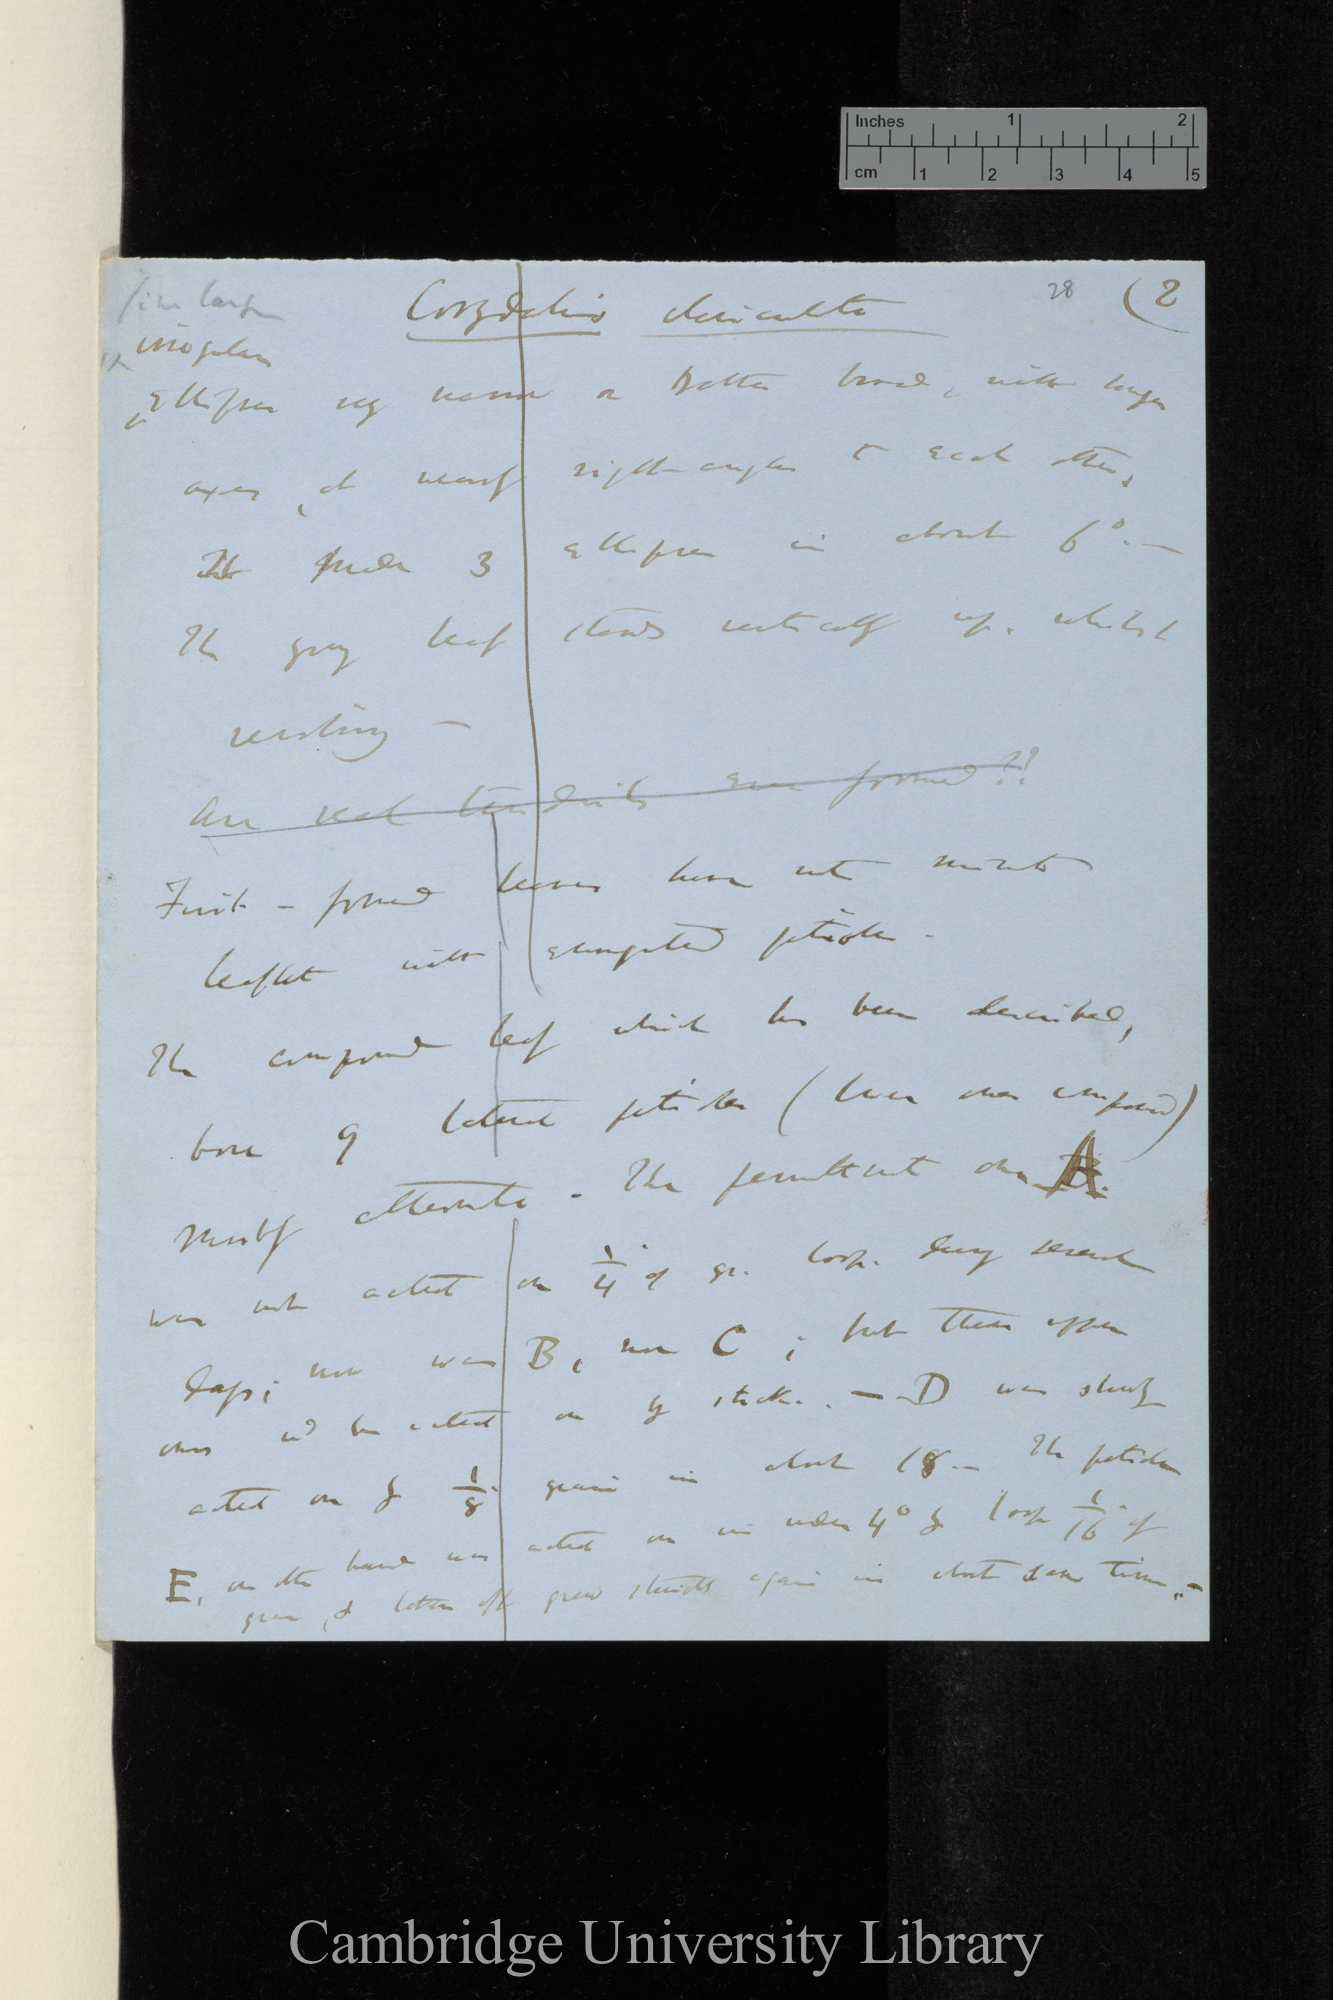 Inches 1 2
cm 1 2 3 4 5
28 (2
Corydalis claviculata
irregular
Ellipses very narrow or rather broad, with longer
axes, at nearly right-angles to each other,
It made 3 ellipses in about 6°.—
The young leaf stands vertically up. whilst
resting —
Are real tendrils ever formed??
First-formed leaves have not minute
leaflets with elongated petioles.
The compound leaf which has been described,
bore 9 lateral petioles (lower ones compound)
mostly alternate. The penultimate one A
was not acted on 1/4 of gr. loop. during several
days; nor was B, nor C; but these upper
ones wd be acted on by sticks. — D was slowly
acted on by 1/8 grain in about 18.— The petiole
E, on other hand was acted on in under 4° by loop 1/16 of
grain, & taken off grew straight again in about same time.—
Cambridge University Library